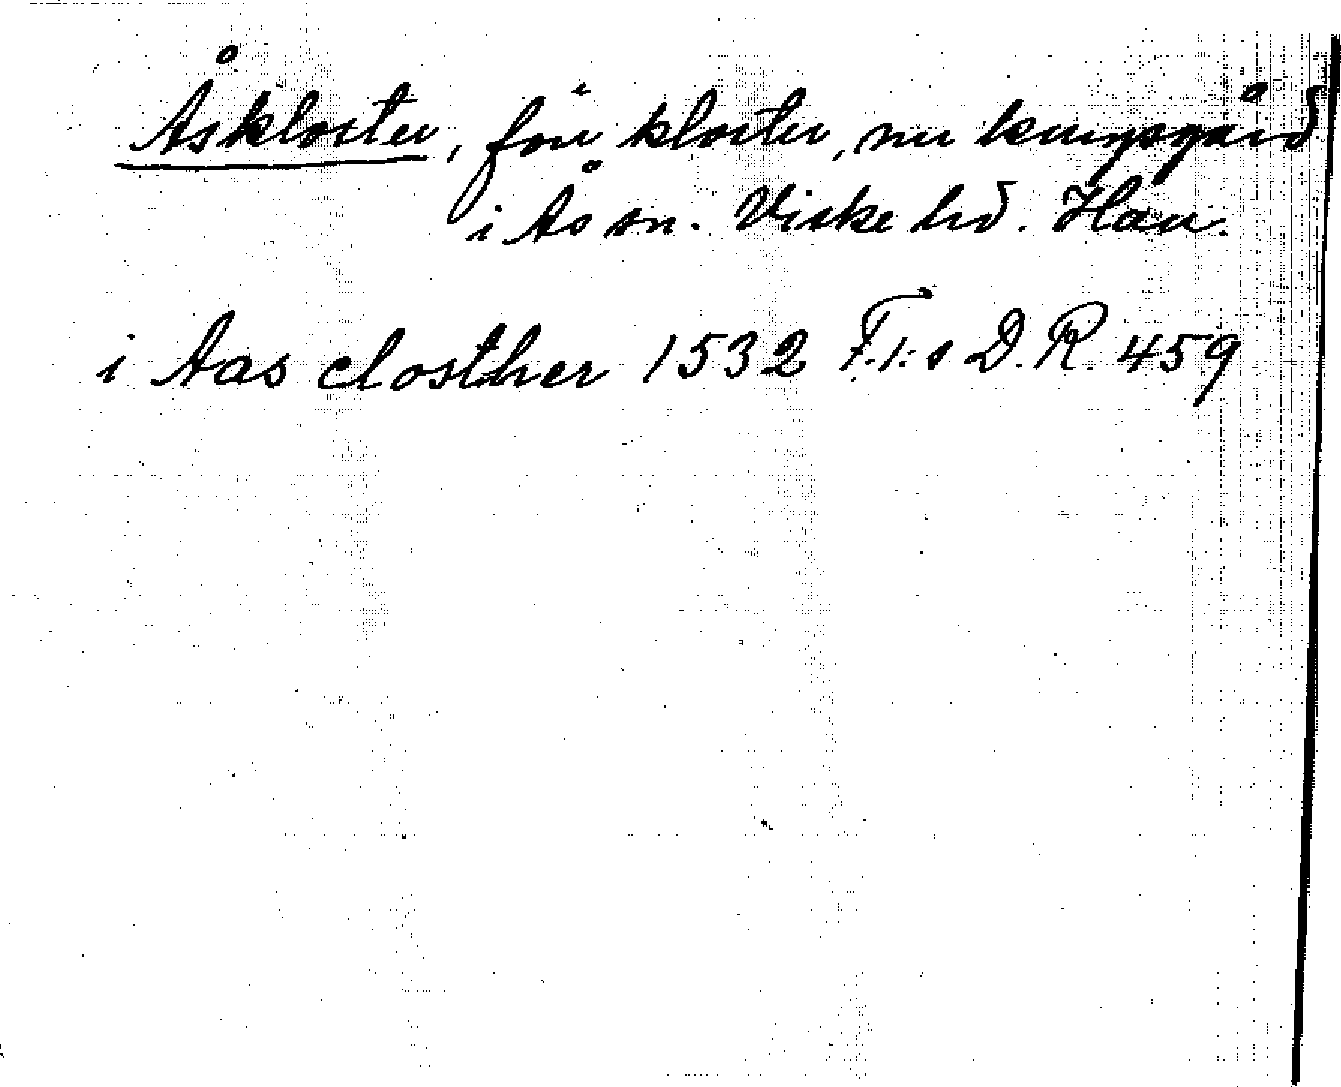 Åskloster, förr kloster, nu kungsgård
i Ås sn. Viske hd. Hall.
i Aas closther 1532 F.I:s D.R. 459